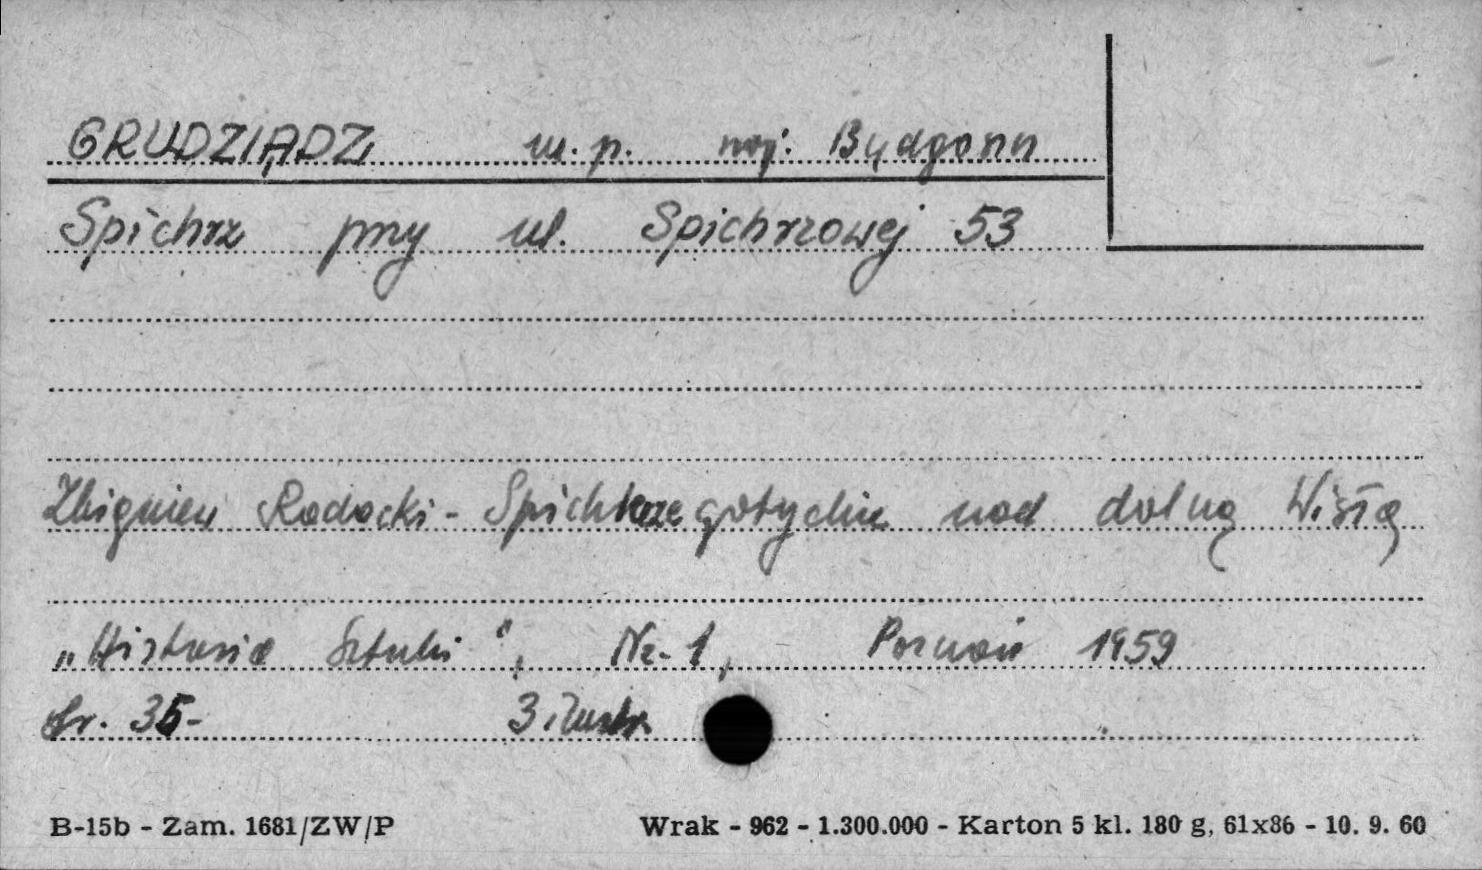 GRUDZIĄDZ m.p. woj. Bydgoszcz
Spichrz przy ul. Spichrzowej 53
Zbigniew Radacki - Spichrze gotyckie nad dolną Wisłą
„Historia Sztuki", Nr. 1, Poznań 1959
str. 35- 3 ilustr.
B-15b - Zam. 1681/ZW/P Wrak - 962 - 1.300.000 - Karton 5 kl. 180 g, 61x86 - 10. 9. 60